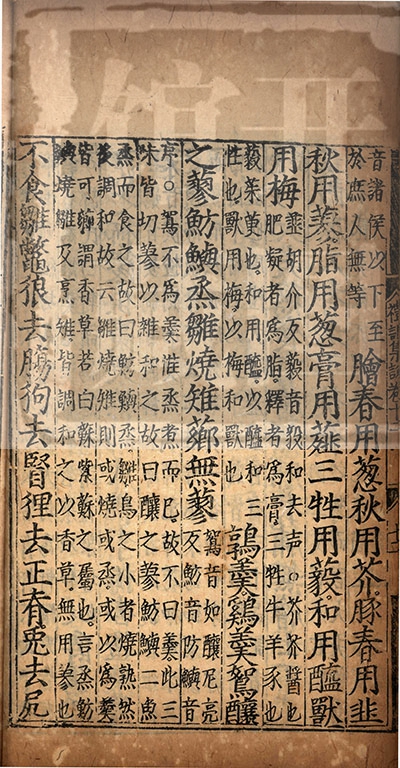 音諸侯以下至
於庶人無等
膾春用葱秋用芥豚春用韭
秋用蓼脂用葱膏用薤三牲用藙和用醯獸
用梅
薤胡介反藙音毅和去声○芥芥醬也
肥凝者爲脂釋者爲膏三牲牛羊豕也
藙茱萸也和用醯以醯和三
牲也獸用梅以梅和獸也
鶉羹鷄羹鴽釀
之蓼魴鱮烝雛燒雉薌無蓼
鴽音如釀尼亮
反魴音防鱮音
序○鴽不爲羹惟烝煮而已故不曰羹此三
味皆切蓼以雜和之故曰釀之蓼魴鱮二魚
烝而食之故曰魴鱮烝雛鳥之小者燒熟然
後調和故云雛燒雉則或燒或烝或以爲羹
皆可薌謂香草若白蘇紫蘇之屬也言烝魴
鱮燒雛及烹雉皆調和之以香草無用蓼也
不食雛鼈狼去腸狗去腎狸去正脊兎去尻